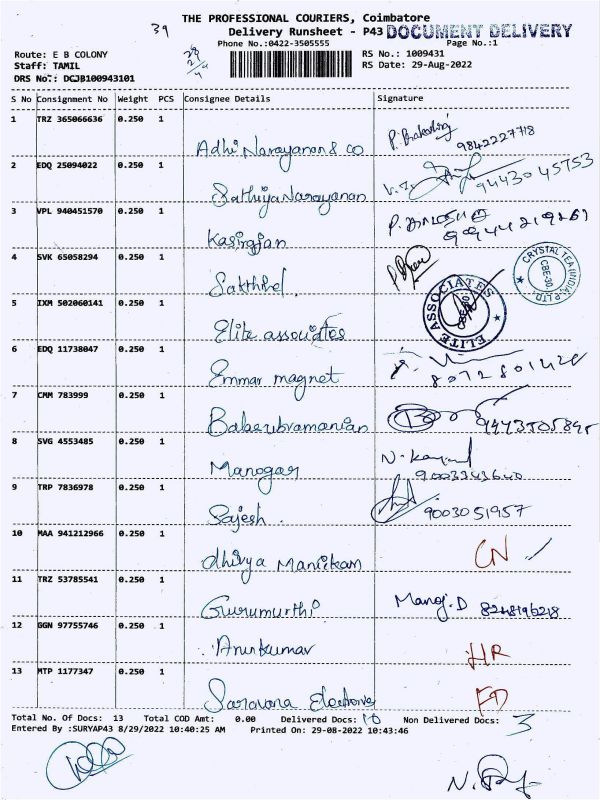 THE PROFESSIONAL COURIERS, Coimbatore
39
Delivery Runsheet - P43 DOCUMENT DELIVERY
Phone No.:0422-3505555 Page No.:1
Route: E B COLONY RS No.: 1009431
Staff: TAMIL RS Date: 29-Aug-2022
DRS No.: DCJB100943101
S No Consignment No Weight PCS Consignee Details Signature
1 TRZ 365066636 0.250 1
Adhi Narayanan & Co 9842227718
2 EDQ 25094022 0.250 1
Sathiya Narayanan 9443045753
3 VPL 940451570 0.250 1
Kasirajan
4 SVK 65058294 0.250 1
Sakthivel.
CRYSTAL TEA (INDIA) P.LTD. CBE-30
5 IXM 502060141 0.250 1
Elite associates
ELITE ASSOCIATES CBE-30
6 EDQ 11738047 0.250 1
Emmar magnet
7 CMM 783999 0.250 1
Balasubramanian
8 SVG 4553485 0.250 1
Manogar
9 TRP 7836978 0.250 1
Rajesh. 9003051957
10 MAA 941212966 0.250 1
dhivya Manikam CN
11 TRZ 53785541 0.250 1
Gurumurthi Manoj.D 8248196218
12 GGN 97755746 0.250 1
Arunkumar HR
13 MTP 1177347 0.250 1
Saravana Electronics FD
Total No. Of Docs: 13 Total COD Amt: 0.00 Delivered Docs: 10 Non Delivered Docs: 3
Entered By :SURYAP43 8/29/2022 10:40:25 AM Printed On: 29-08-2022 10:43:46